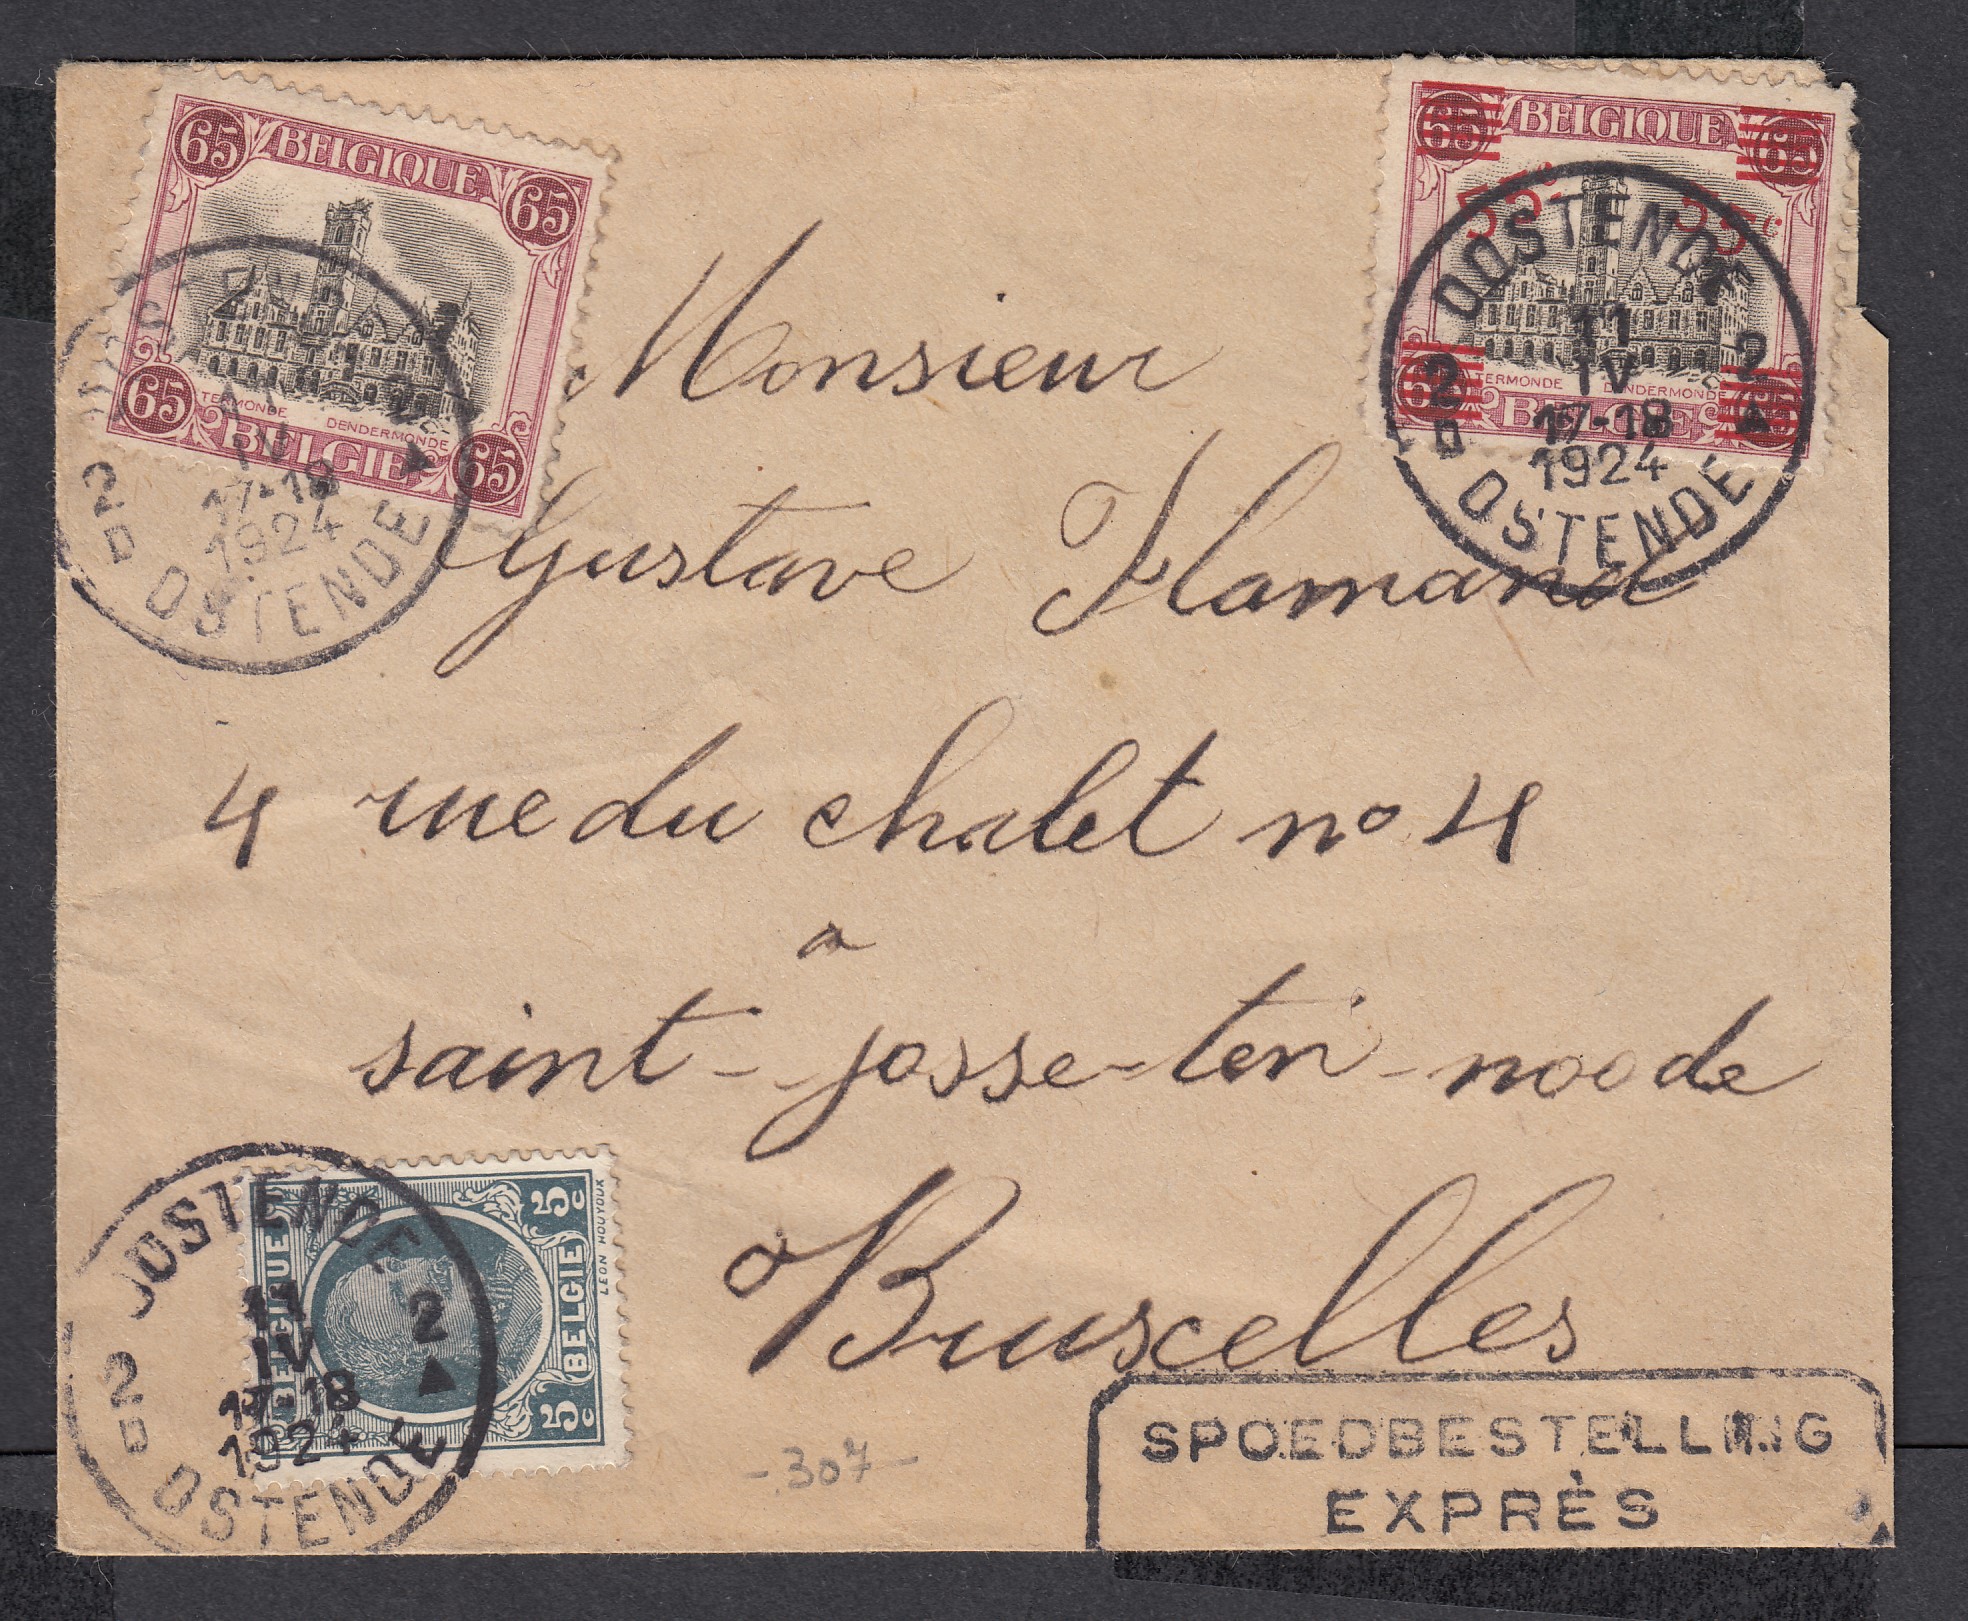 65 BELGIQUE 65
65 TERMONDE DENDERMONDE 65
BELGIE
2 11 IV 2
17-18
1924
OSTENDE
65 BELGIQUE 65
55c 55c
TERMONDE DENDERMONDE
BELGIE
OOSTENDE
2 11 IV 2
17-18
1924
OSTENDE
Monsieur
Gustave Flamand
4 rue du chalet no 4
a
saint-josse-ten-noode
Bruxelles
OOSTENDE
2 11 IV 2
17-18
1924
OSTENDE
BELGIQUE
5c BELGIE 5c
LEON HOUYOUX
-307-
SPOEDBESTELLING
EXPRÈS